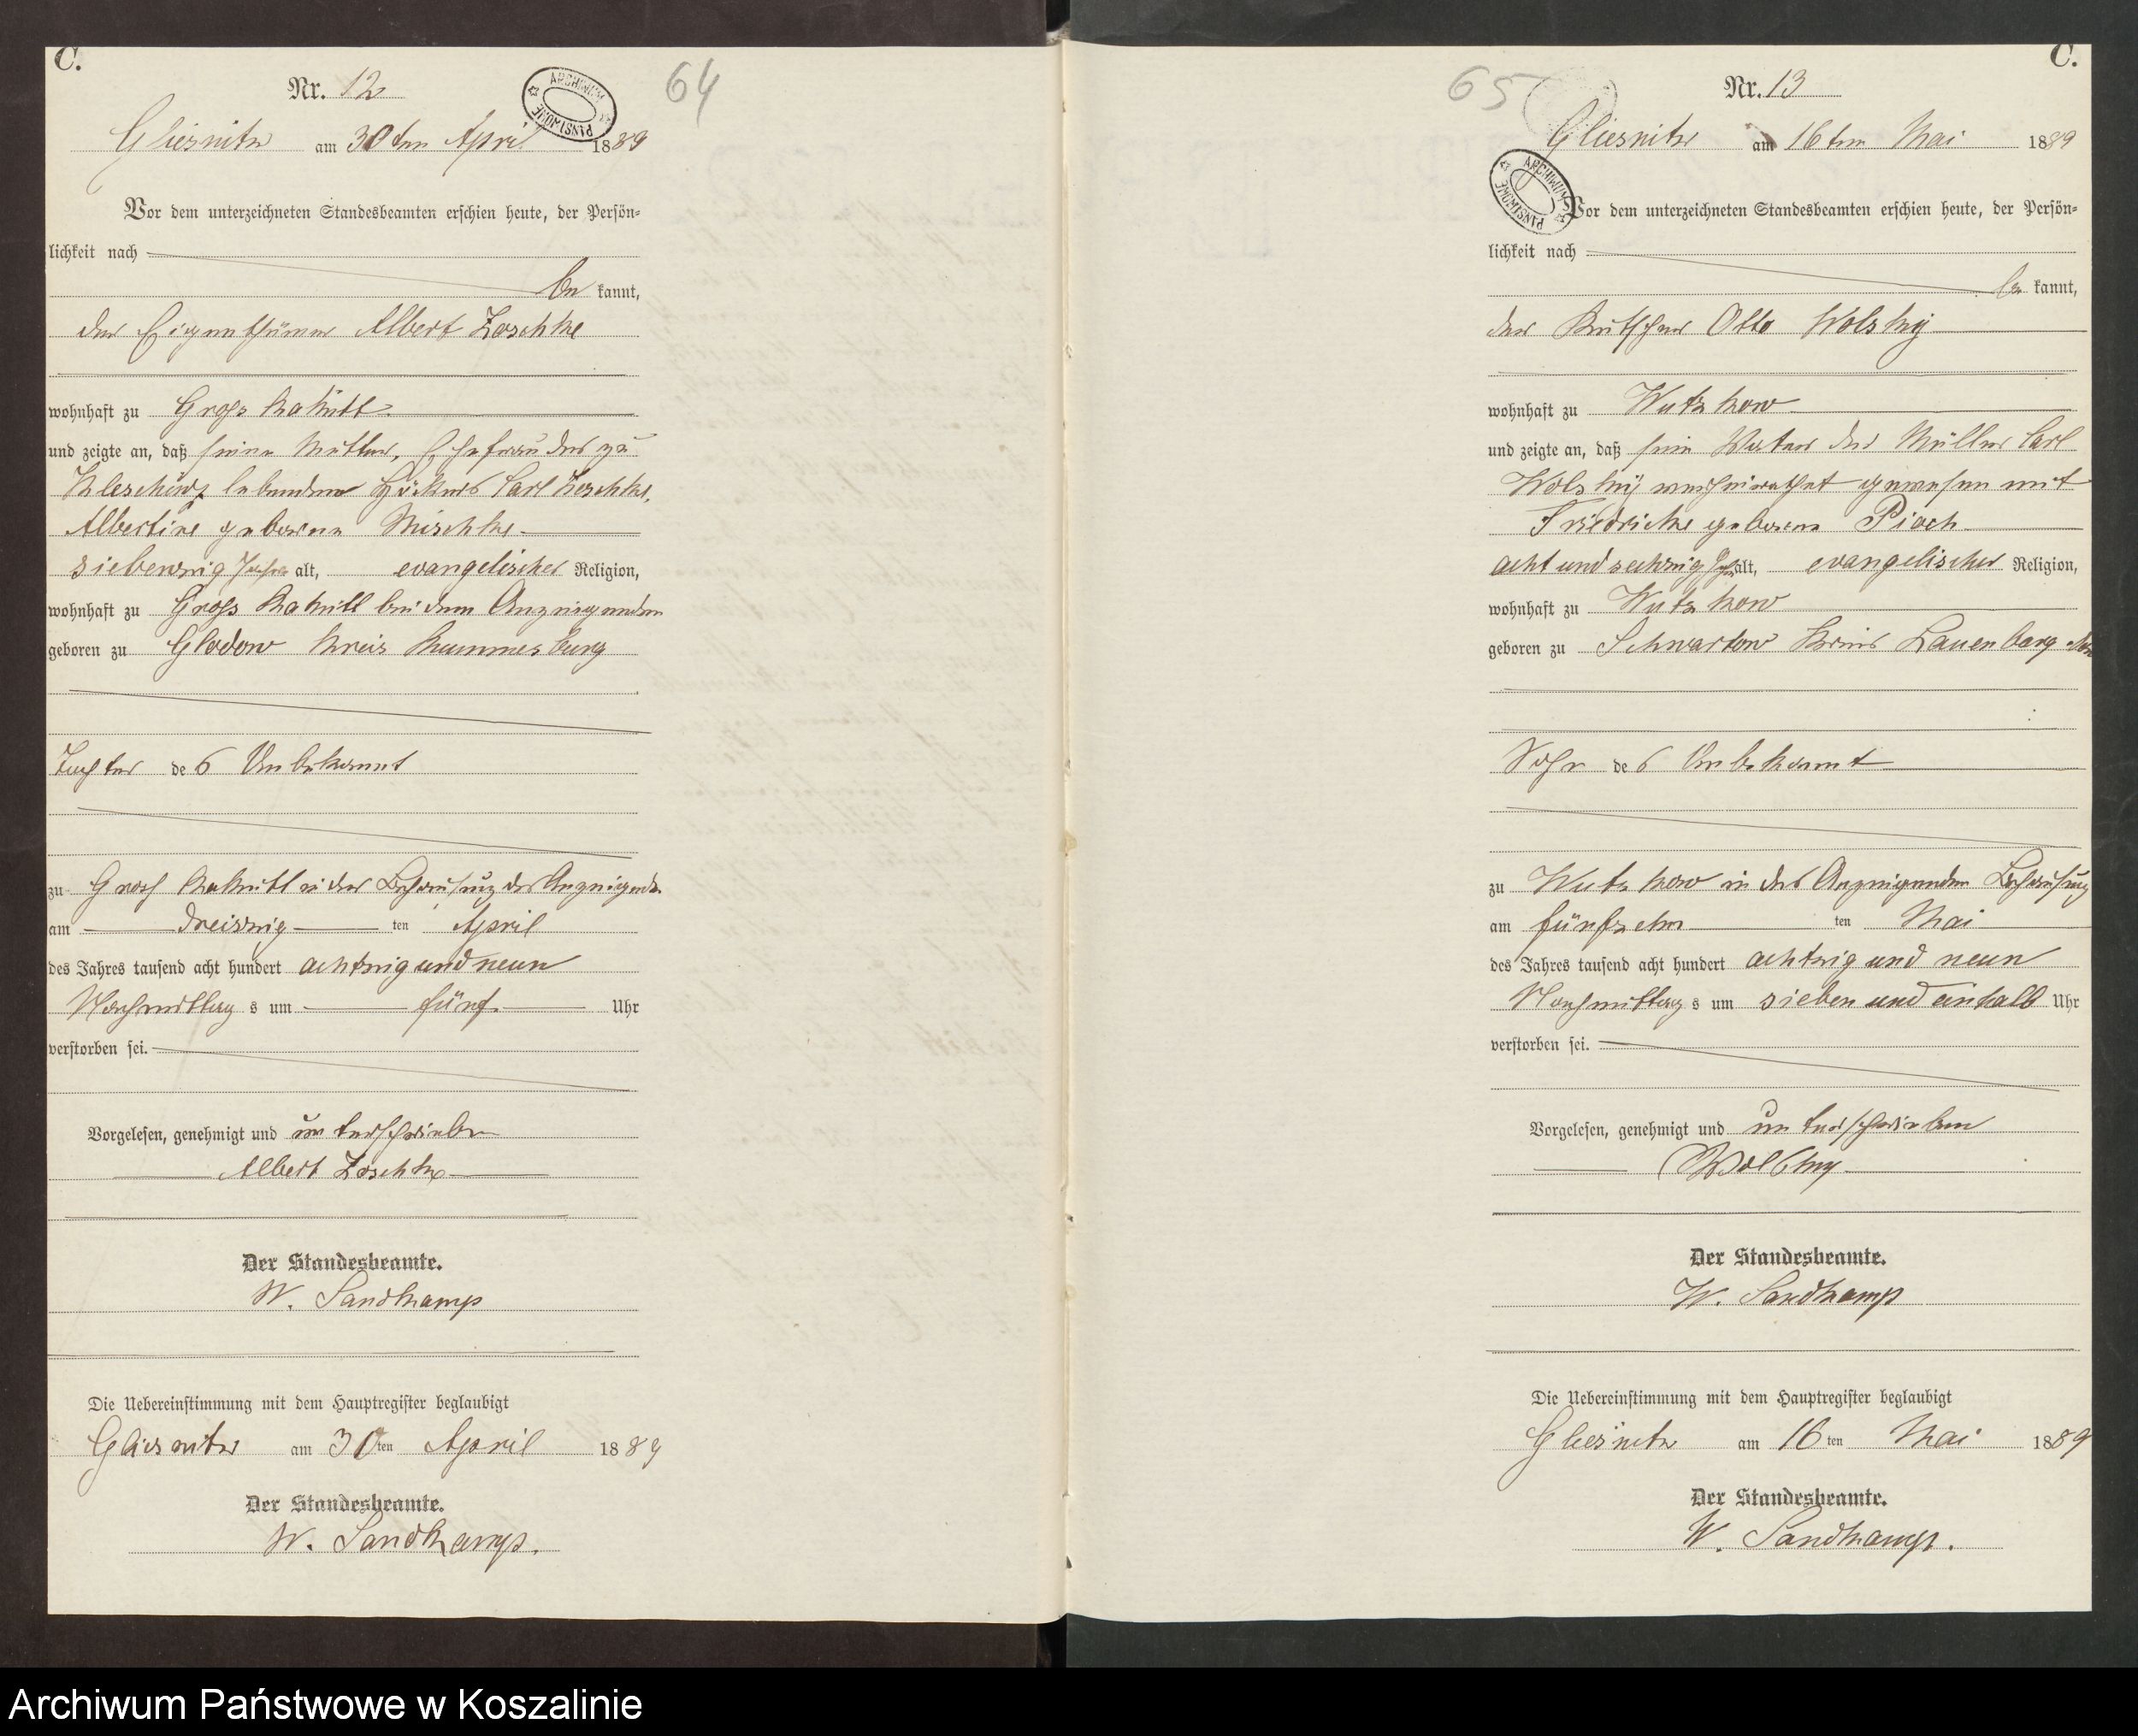 C.
Nr. 12
64
ARCHIWUM PAŃSTWOWE
Gliesnitz am 30ten April 1889
Vor dem unterzeichneten Standesbeamten erschien heute, der Persön-
lichkeit nach
be kannt,
der Eigenthümer Albert Zeschke
wohnhaft zu Gross Rakitt
und zeigte an, daß seine Mutter, Ehefrau des zu
Kleschinz lebenden Carl Zeschke,
Albertine geborene Mischke
siebenzig Jahre alt, evangelischer Religion,
wohnhaft zu Gross Rakitt bei dem Anzeigenden
geboren zu Glodow Kreis Rummelsburg
Tochter des Unbekannt
zu Gross Rakitt in der Behausung des Anzeigenden
am dreiszig ten April
des Jahres tausend acht hundert achtzig und neun
Nachmittag s um fünf Uhr
verstorben sei.
Vorgelesen, genehmigt und unterschrieben
Albert Zeschke
Der Standesbeamte.
W. Sandkamp
Die Uebereinstimmung mit dem Hauptregister beglaubigt
Gliesnitz am 30ten April 1889
Der Standesbeamte.
W. Sandkamp.
C.
65
Nr. 13
ARCHIWUM PAŃSTWOWE
Gliesnitz am 16ten Mai 1889
Vor dem unterzeichneten Standesbeamten erschien heute, der Persön-
lichkeit nach
be kannt,
der Kutscher Otto Wolsky
wohnhaft zu Wutzkow
und zeigte an, daß sein Vater der Müller Carl
Wolsky verheirathet gewesen mit
Friedricke geborene Pioch
acht und sechzig Jahre alt, evangelischer Religion,
wohnhaft zu Wutzkow
geboren zu Schwartow Kreis Lauenburg
Sohn des Unbekannt
zu Wutzkow in des Anzeigenden Behausung
am fünfzehn ten Mai
des Jahres tausend acht hundert achtzig und neun
Nachmittag s um sieben und einhalb Uhr
verstorben sei.
Vorgelesen, genehmigt und unterschrieben
Wolsky
Der Standesbeamte.
W. Sandkamp
Die Uebereinstimmung mit dem Hauptregister beglaubigt
Gliesnitz am 16ten Mai 1889
Der Standesbeamte.
W. Sandkamp.
Archiwum Państwowe w Koszalinie